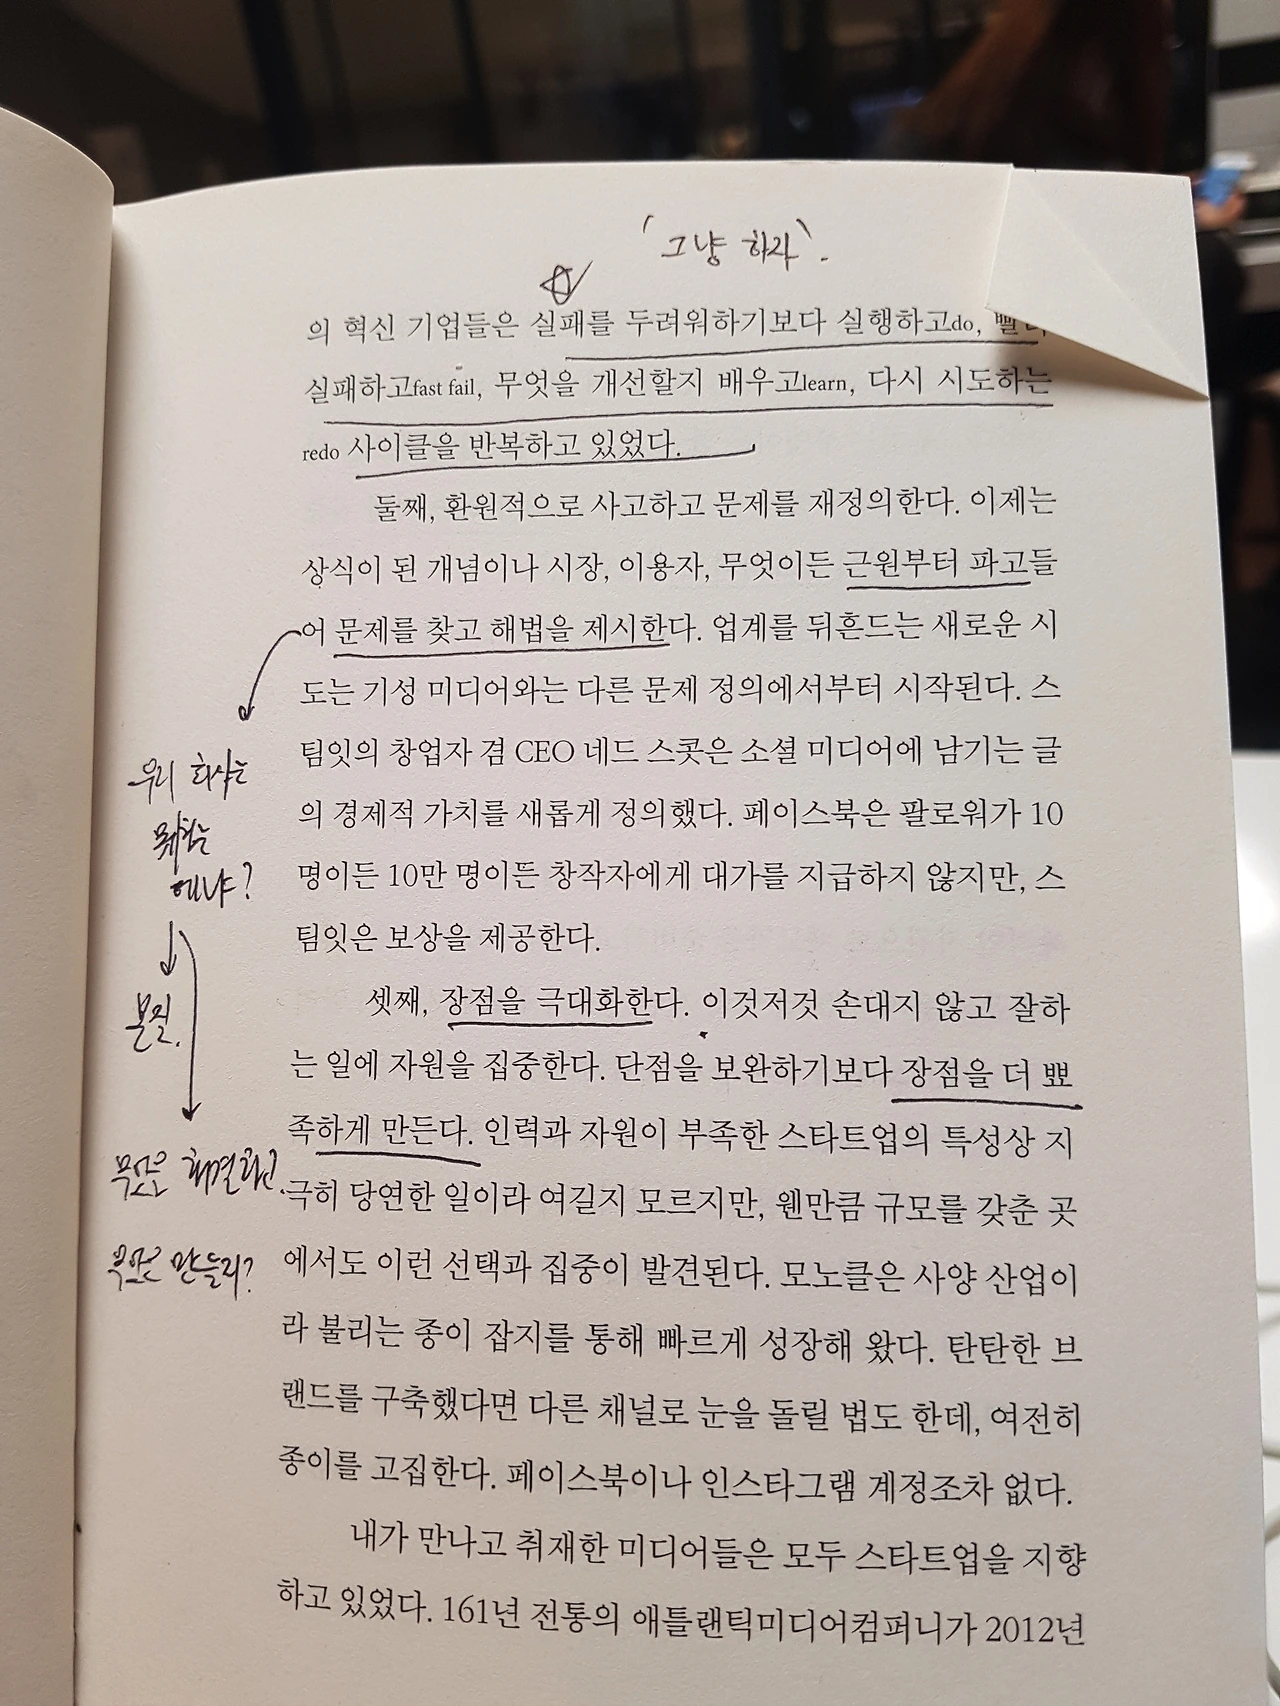 '그냥 하자'.
의 혁신 기업들은 실패를 두려워하기보다 실행하고do, 빨리
실패하고fast fail, 무엇을 개선할지 배우고learn, 다시 시도하는
redo 사이클을 반복하고 있었다.
둘째, 환원적으로 사고하고 문제를 재정의한다. 이제는
상식이 된 개념이나 시장, 이용자, 무엇이든 근원부터 파고들
어 문제를 찾고 해법을 제시한다. 업계를 뒤흔드는 새로운 시
도는 기성 미디어와는 다른 문제 정의에서부터 시작된다. 스
팀잇의 창업자 겸 CEO 네드 스콧은 소셜 미디어에 남기는 글
의 경제적 가치를 새롭게 정의했다. 페이스북은 팔로워가 10
명이든 10만 명이든 창작자에게 대가를 지급하지 않지만, 스
팀잇은 보상을 제공한다.
셋째, 장점을 극대화한다. 이것저것 손대지 않고 잘하
는 일에 자원을 집중한다. 단점을 보완하기보다 장점을 더 뾰
족하게 만든다. 인력과 자원이 부족한 스타트업의 특성상 지
극히 당연한 일이라 여길지 모르지만, 웬만큼 규모를 갖춘 곳
에서도 이런 선택과 집중이 발견된다. 모노클은 사양 산업이
라 불리는 종이 잡지를 통해 빠르게 성장해 왔다. 탄탄한 브
랜드를 구축했다면 다른 채널로 눈을 돌릴 법도 한데, 여전히
종이를 고집한다. 페이스북이나 인스타그램 계정조차 없다.
내가 만나고 취재한 미디어들은 모두 스타트업을 지향
하고 있었다. 161년 전통의 애틀랜틱미디어컴퍼니가 2012년
우리 회사는
뭐하는
데냐?
본질.
무엇을 해결하고.
무엇을 만들리?